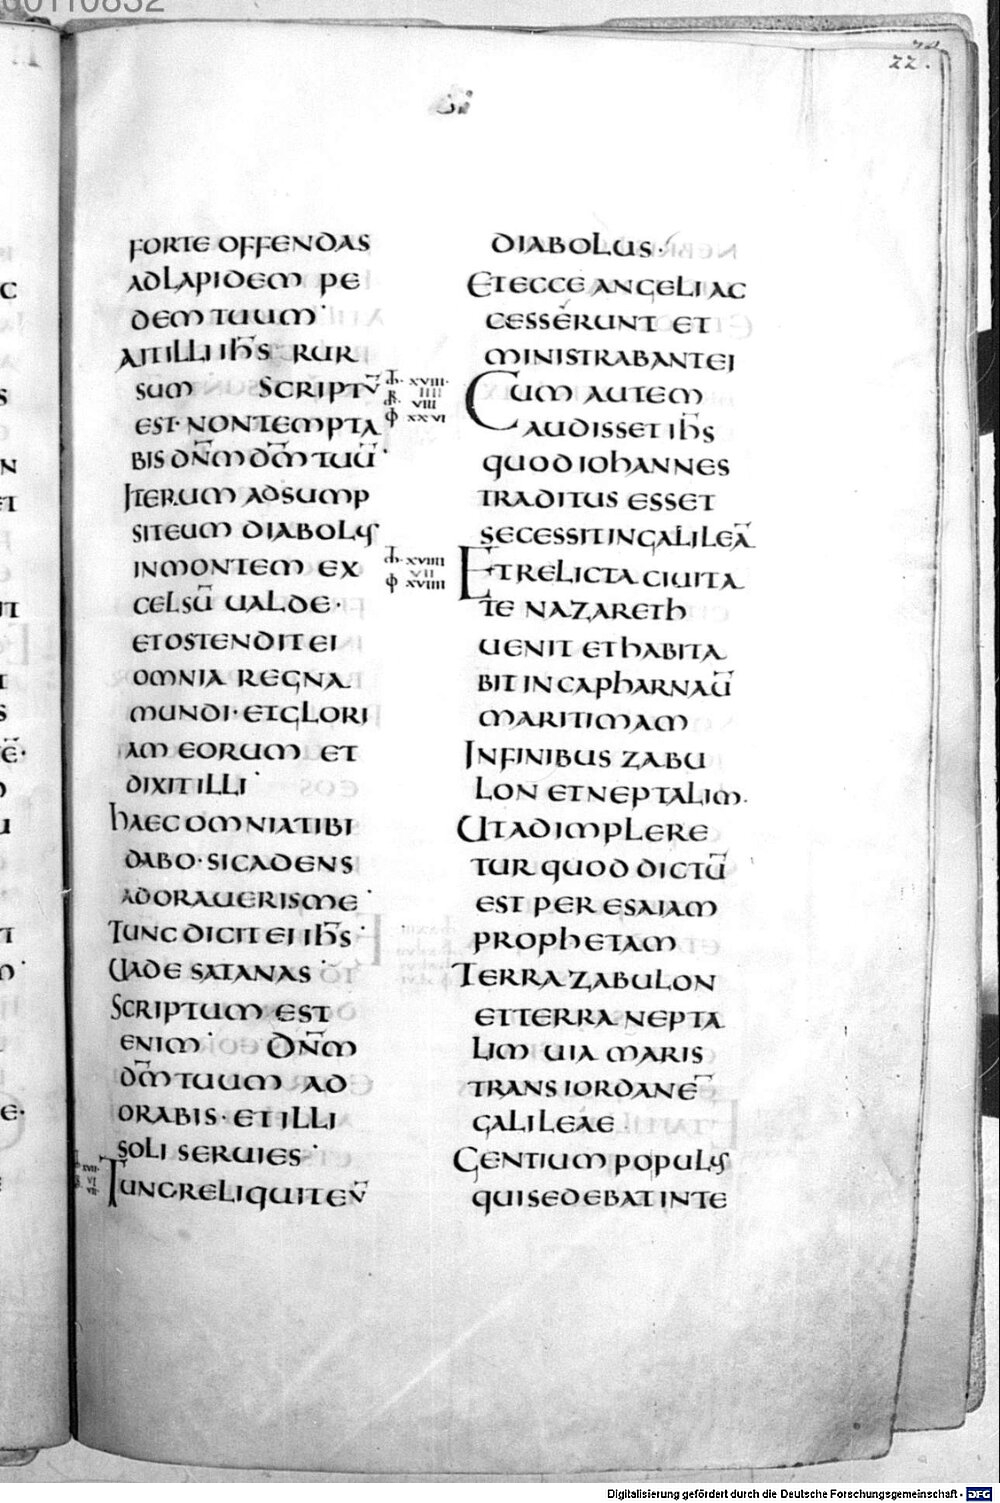 00110832
22.
FORTE OFFENDAS
ADLAPIDEM PE
DEM TUUM·
AITILLI IHS RUR
SUM SCRIPTV̄
EST·NONTEMPTA
BIS DN̄M DM̄ TUŪ·
ITERUM ADSUMP
SITEUM DIABOLUS
INMONTEM EX
CELSŪ UALDE·
ETOSTENDITEI
OMNIA REGNA
MUNDI·ETGLORI
AM EORUM ET
DIXITILLI·
hAECOMNIATIBI
DABO·SICADENS
ADORAUERISME·
TUNCDICITEI IhS̄·
UADE SATANAS·
SCRIPTUM EST
ENIM· DN̄M
DM̄ TUUM AD
ORABIS·ETILLI
SOLI SERUIES·
XVII·
VI
VII·
TUNCRELIQUITEV̄
DIABOLUS·
ETECCE ANGELI AC
CESSERUNT ET
MINISTRABANTEI
XVIII·
IIII
VIII
XXVI
CUM AUTEM
AUDISSET IhS̄
QUOD IOhANNES
TRADITUS ESSET
SECESSITINGALILEĀ
XVIIII
VII
XVIIII
ETRELICTA CIUITA
TE NAZARETh
UENIT ET hABITA
BIT IN CAPhARNAŪ
MARITIMAM
INFINIBUS ZABU
LON ETNEPTALIM·
UTADIMPLERE
TUR QUOD DICTŪ
EST PER ESAIAM
PROPhETAM
TERRA ZABULON
ETTERRA NEPTA
LIM UIA MARIS
TRANS IORDANĒ
GALILEAE
GENTIUM POPULUS
QUISEDEBAT INTE
Digitalisierung gefördert durch die Deutsche Forschungsgemeinschaft - DFG